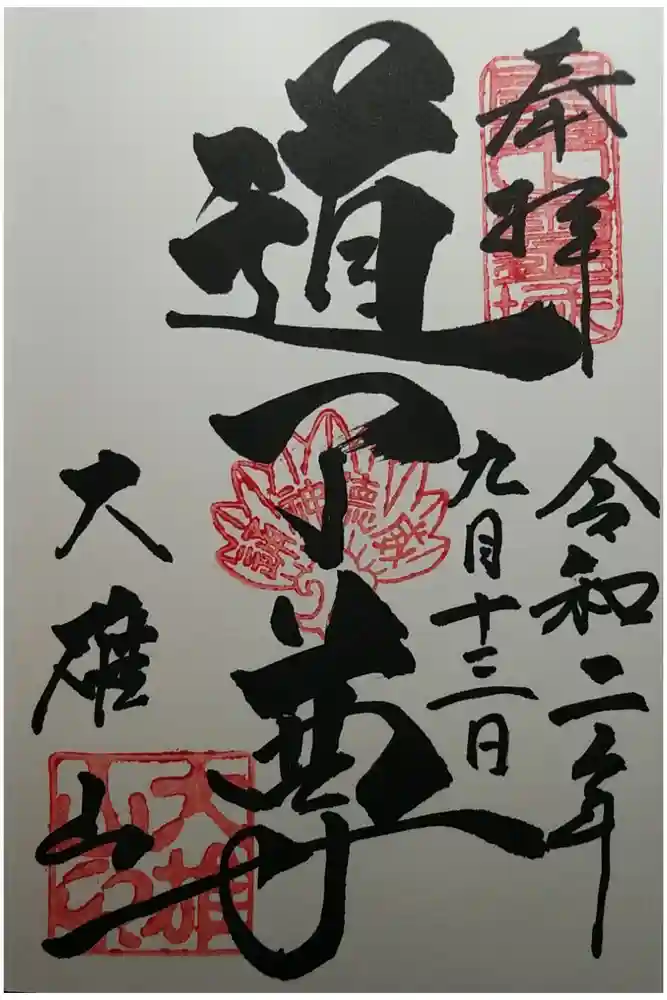 奉拝
令和二年
九月十三日
道了尊
大雄山